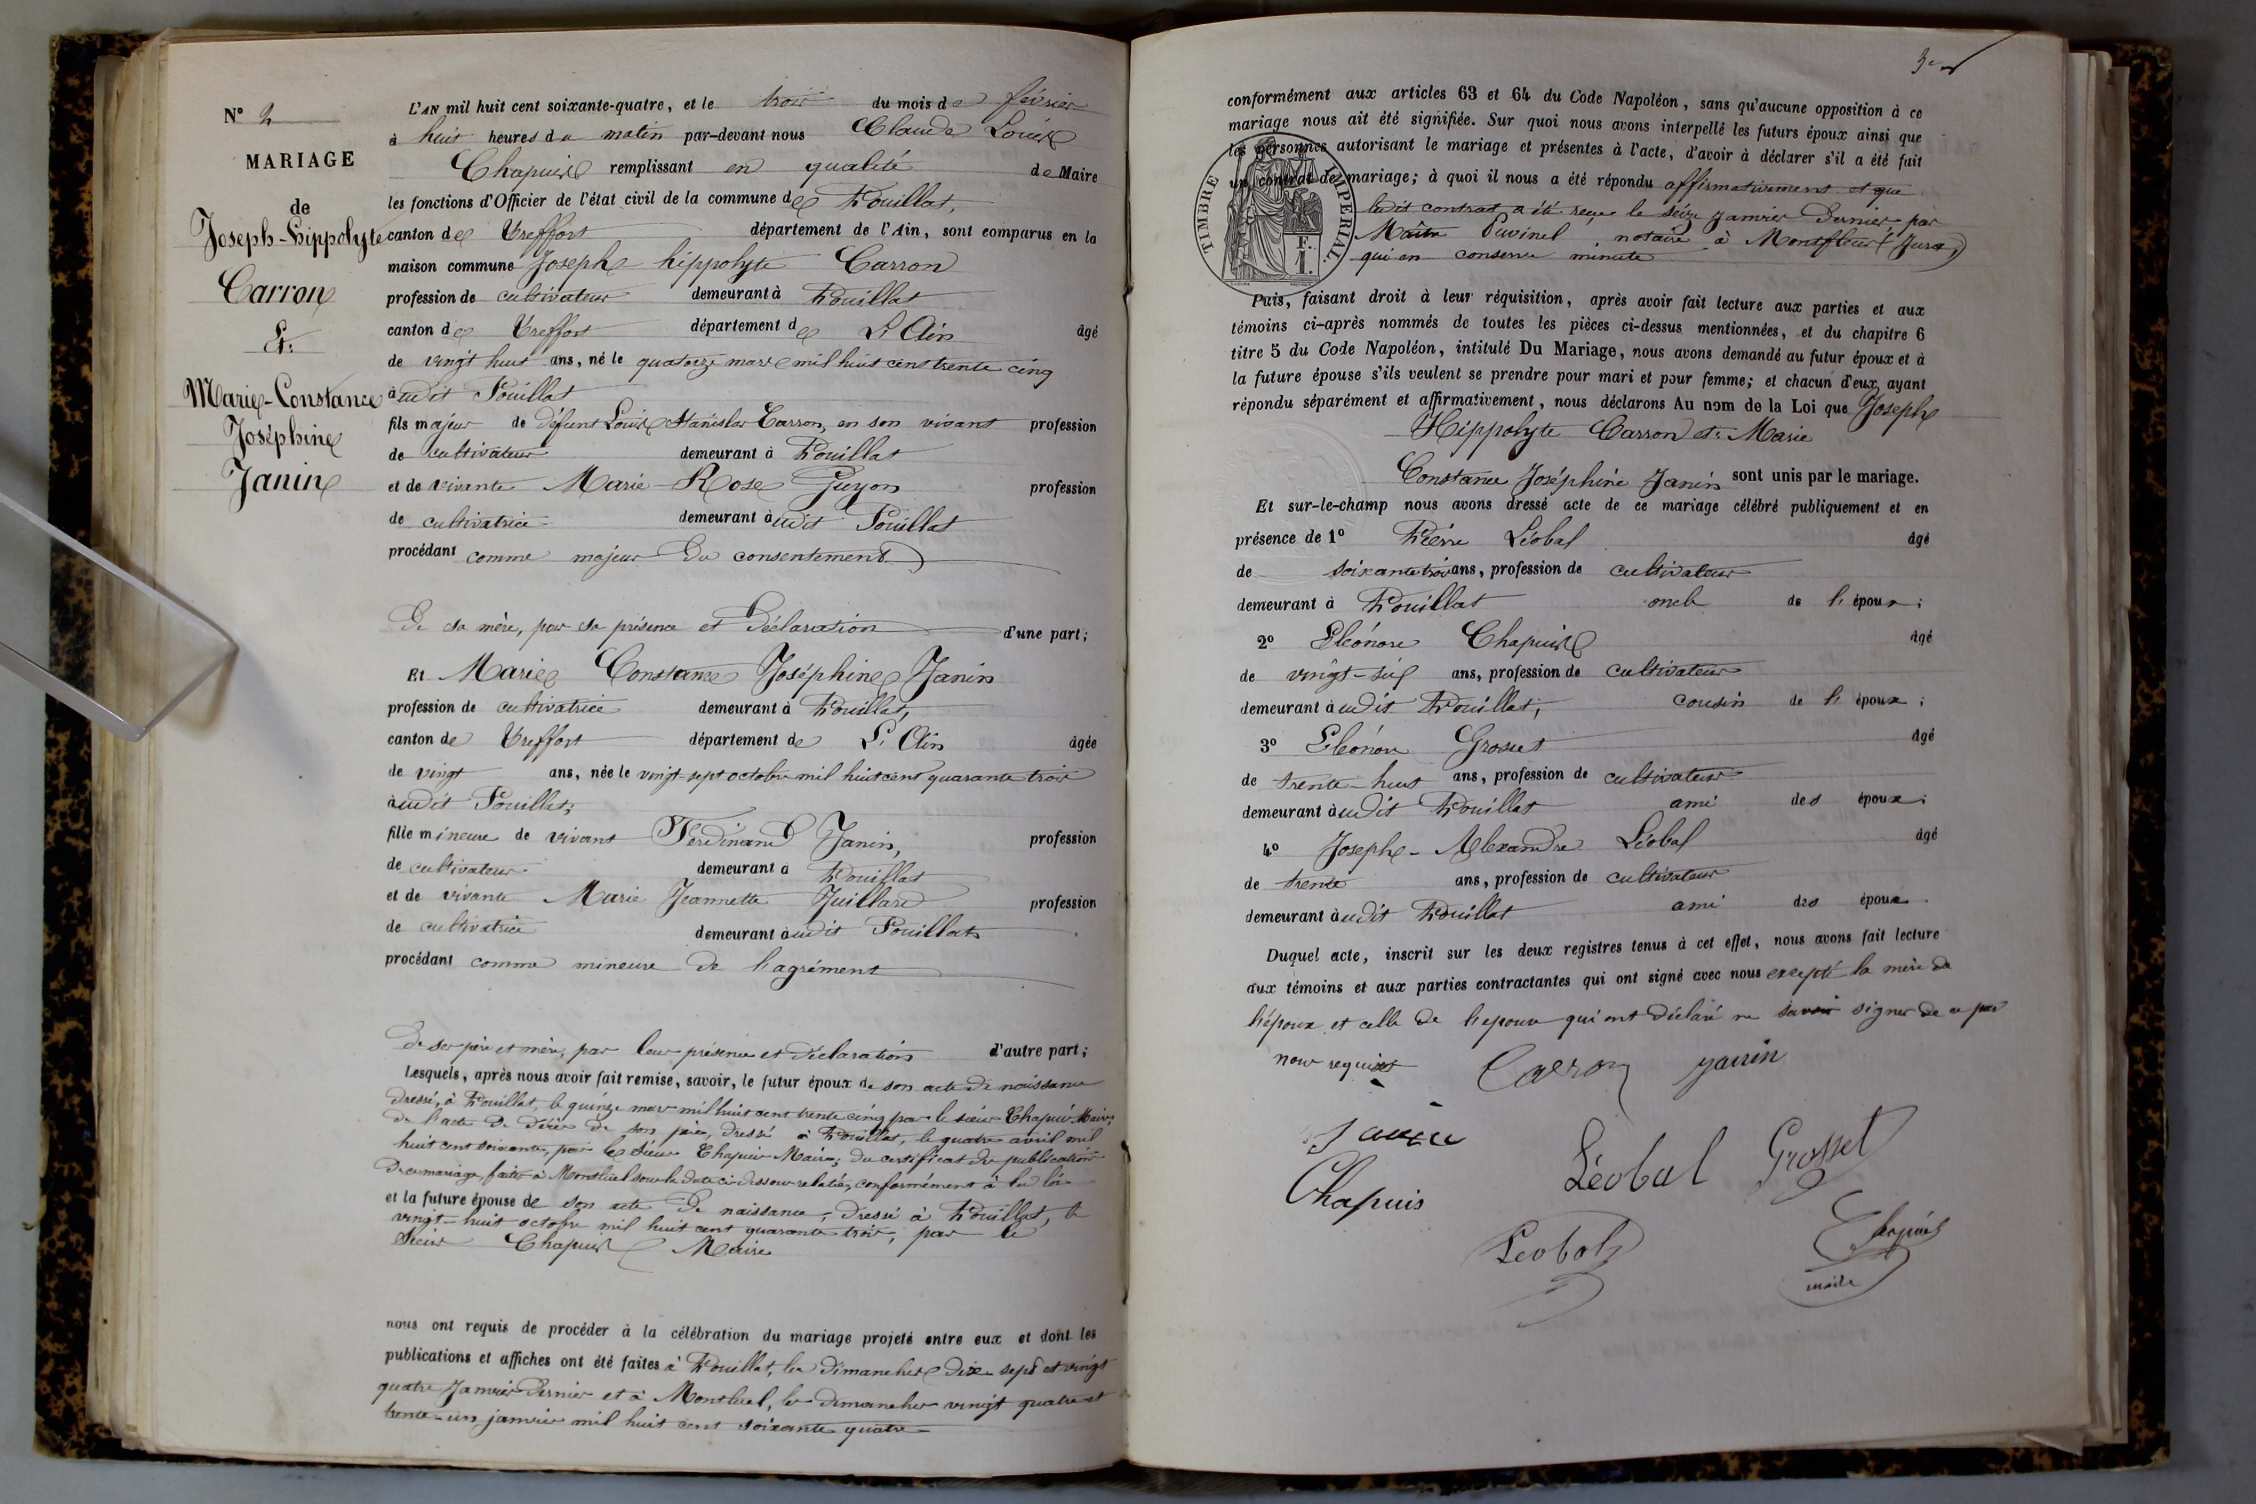 N° 2
MARIAGE
de
Joseph-hippolyte
Carron
Et
Marie-Constance
Joséphine
Janin
L'AN mil huit cent soixante-quatre, et le trois du mois de février
à huit heures du matin par-devant nous Claude Louis
Chapuis remplissant en qualité de Maire
les fonctions d'Officier de l'état civil de la commune de Pouillat,
canton de Treffort département de l'Ain, sont comparus en la
maison commune Joseph hippolyte Carron
profession de cultivateur demeurant à Pouillat
canton de Treffort département de L'Ain âgé
de vingt huit ans, né le quatorze mars mil huit cent trente cinq
à udit Pouillat
fils majeur de défunt Louis Stanislas Carron, en son vivant profession
de cultivateur demeurant à Pouillat
et de vivante Marie Rose Guyon profession
de cultivatrice demeurant à udit Pouillat
procédant comme majeur du consentement
de sa mère, par sa présence et déclaration d'une part;
Et Marie Constance Joséphine Janin
profession de cultivatrice demeurant à Pouillat,
canton de Treffort département de L'Ain âgée
de vingt ans, née le vingt-sept octobre mil huit cent quarante trois
à udit Pouillat,
fille mineure de vivant Ferdinand Janin, profession
de cultivateur demeurant à Pouillat
et de vivante Marie Jeannette Juillard profession
de cultivatrice demeurant à udit Pouillat
procédant comme mineure de l'agrément
de ses père et mère, par leur présence et déclaration d'autre part;
Lesquels, après nous avoir fait remise, savoir, le futur époux de son acte de naissance
dressé, à Pouillat, le quinze mars mil huit cent trente cinq par le sieur Chapuis Maire;
de l'acte de décès de son père, dressé à Pouillat, le quatre avril mil
huit cent soixante, par le Sieur Chapuis Maire; du certificat de publication
de ce mariage, faite à Montluel sous la date ci dessous relatée, conformément à la loi
et la future épouse de son acte de naissance, dressé à Pouillat, le
vingt-huit octobre mil huit cent quarante trois, par le
Sieur Chapuis Maire
nous ont requis de procéder à la célébration du mariage projeté entre eux et dont les
publications et affiches ont été faites à Pouillat, les dimanches dix-sept et vingt
quatre Janvier dernier et à Montluel, les dimanches vingt quatre et
trente-un janvier mil huit cent soixante quatre
3
conformément aux articles 63 et 64 du Code Napoléon, sans qu'aucune opposition à ce
mariage nous ait été signifiée. Sur quoi nous avons interpellé les futurs époux ainsi que
les personnes autorisant le mariage et présentes à l'acte, d'avoir à déclarer s'il a été fait
un contrat de mariage; à quoi il nous a été répondu affirmativement et que
ledit contrat a été reçu le seize janvier dernier, par
Maître Puvinel, notaire à Montfleur (Jura)
qui en conserve minute
TIMBRE IMPERIAL.
F.
1.
Puis, faisant droit à leur réquisition, après avoir fait lecture aux parties et aux
témoins ci-après nommés de toutes les pièces ci-dessus mentionnées, et du chapitre 6
titre 5 du Code Napoléon, intitulé Du Mariage, nous avons demandé au futur époux et à
la future épouse s'ils veulent se prendre pour mari et pour femme; et chacun d'eux ayant
répondu séparément et affirmativement, nous déclarons Au nom de la Loi que Joseph
Hippolyte Carron et Marie
Constance Joséphine Janin sont unis par le mariage.
Et sur-le-champ nous avons dressé acte de ce mariage célébré publiquement et en
présence de 1° Pierre Léobal âgé
de soixante trois ans, profession de cultivateur
demeurant à Pouillat oncle de l'époux;
2° Eléonore Chapuis âgé
de vingt-six ans, profession de cultivateur
demeurant à udit Pouillat, cousin de l'époux;
3° Eléonore Grosset âgé
de trente-huit ans, profession de cultivateur
demeurant à udit Pouillat ami des époux;
4° Joseph-Alexandre Léobal âgé
de trente ans, profession de cultivateur
demeurant à udit Pouillat ami des époux.
Duquel acte, inscrit sur les deux registres tenus à cet effet, nous avons fait lecture
aux témoins et aux parties contractantes qui ont signé avec nous excepté la mère de
l'époux et celle de l'épouse qui ont déclaré ne savoir signer de ce par
nous requises
Carron Janin
Janin
Chapuis Léobal Grosset
Léobal Chapuis
maire